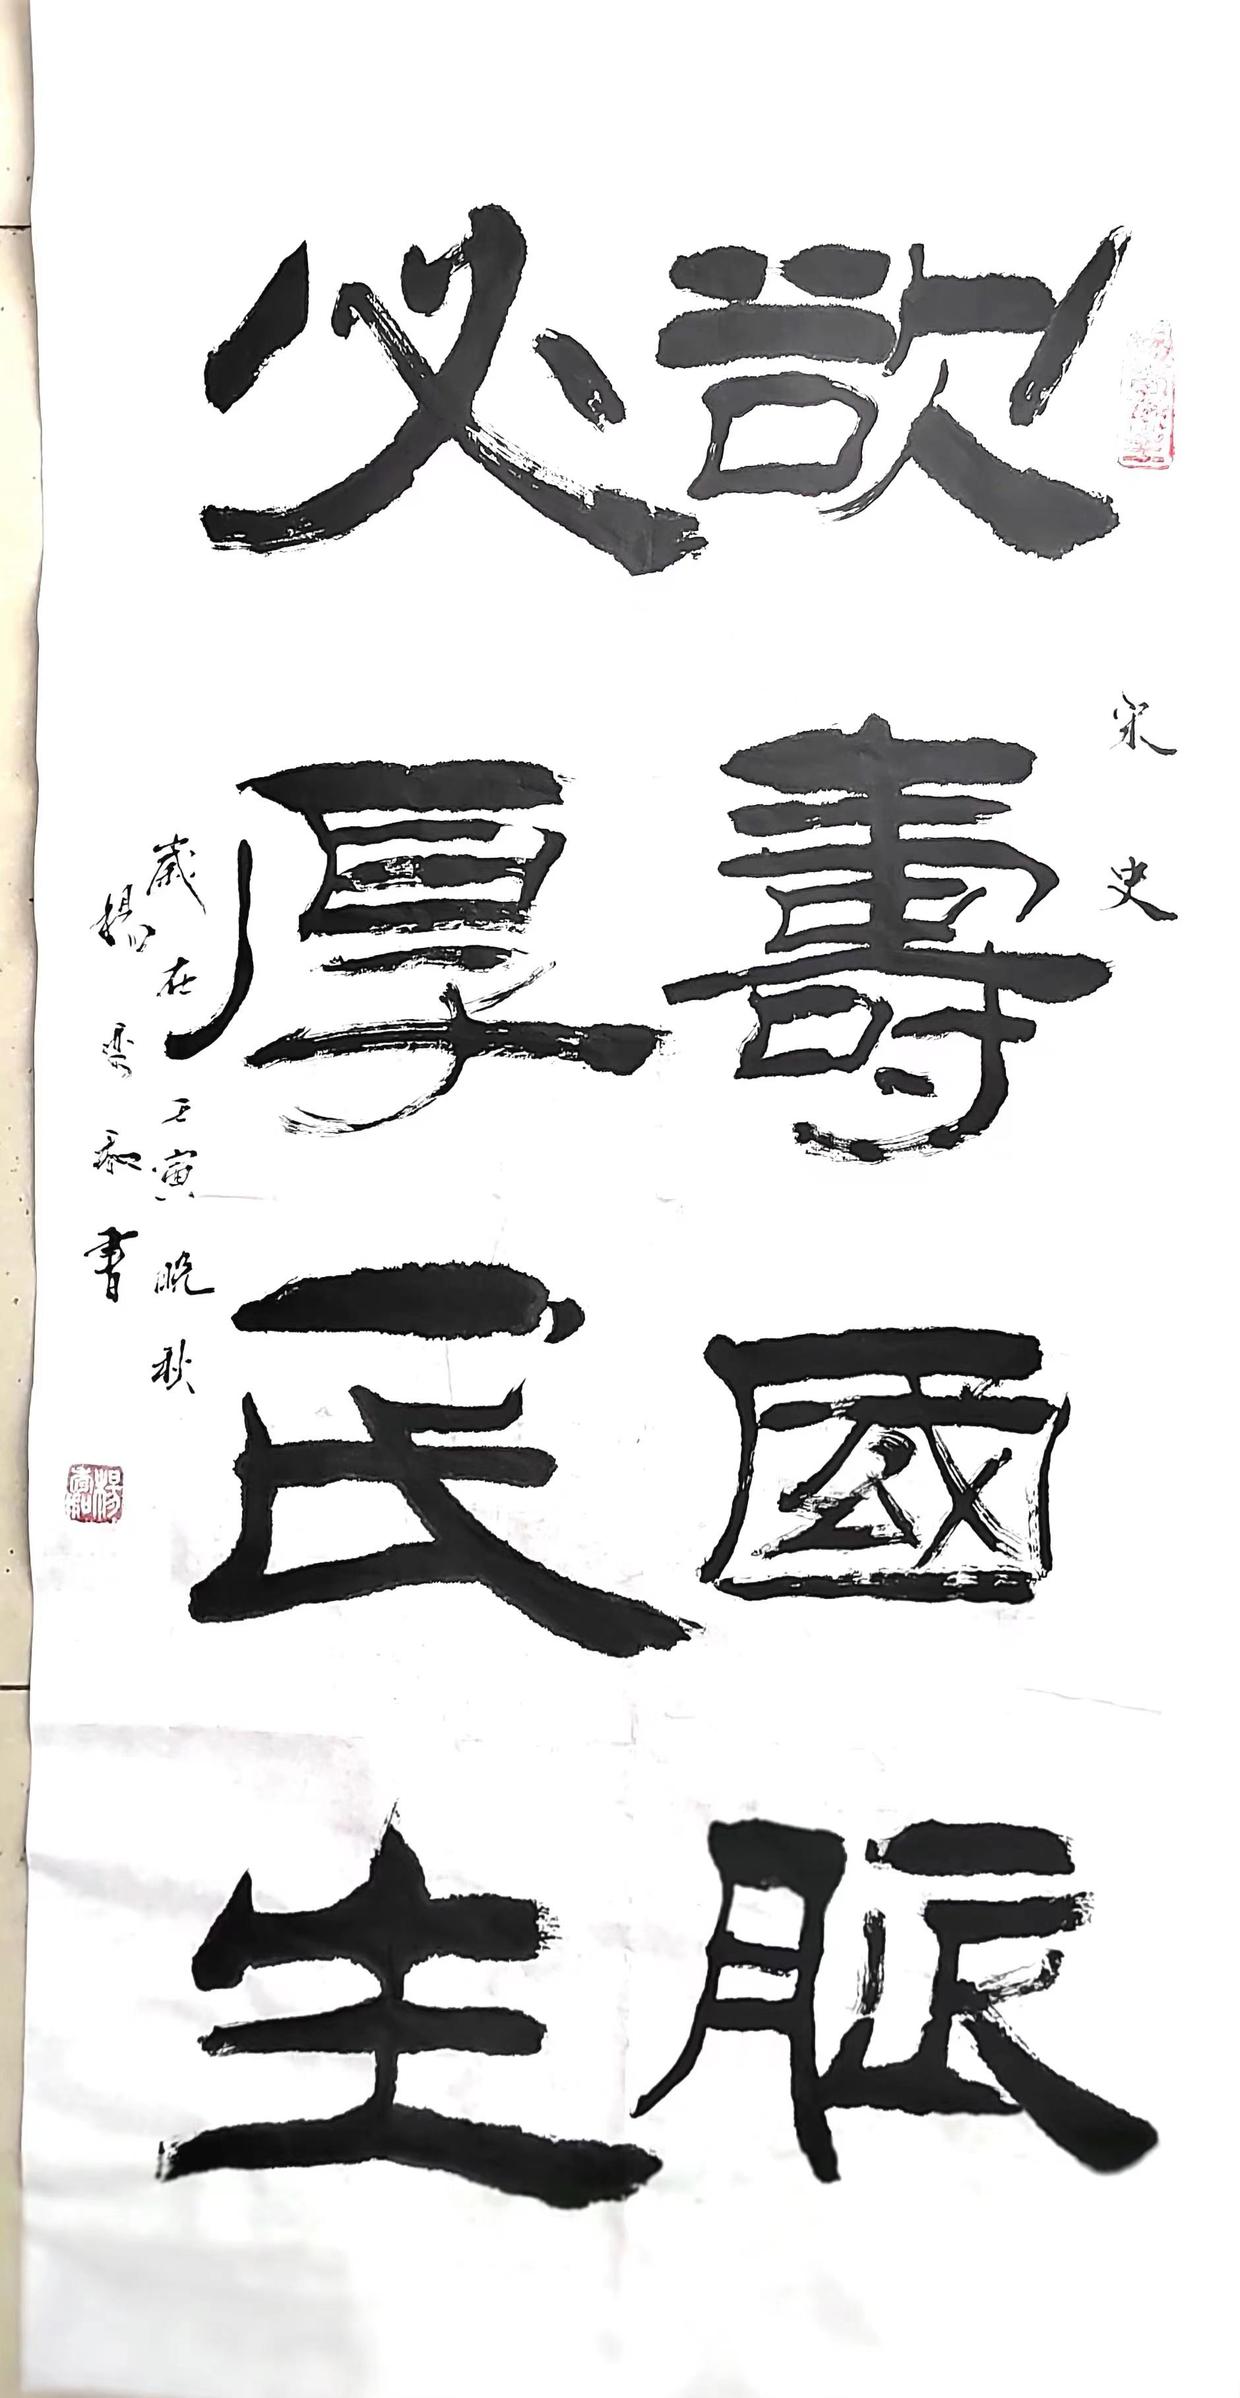 宋史
欲壽國脈
必厚民生
歲在壬寅晚秋
楊秀和書
楊